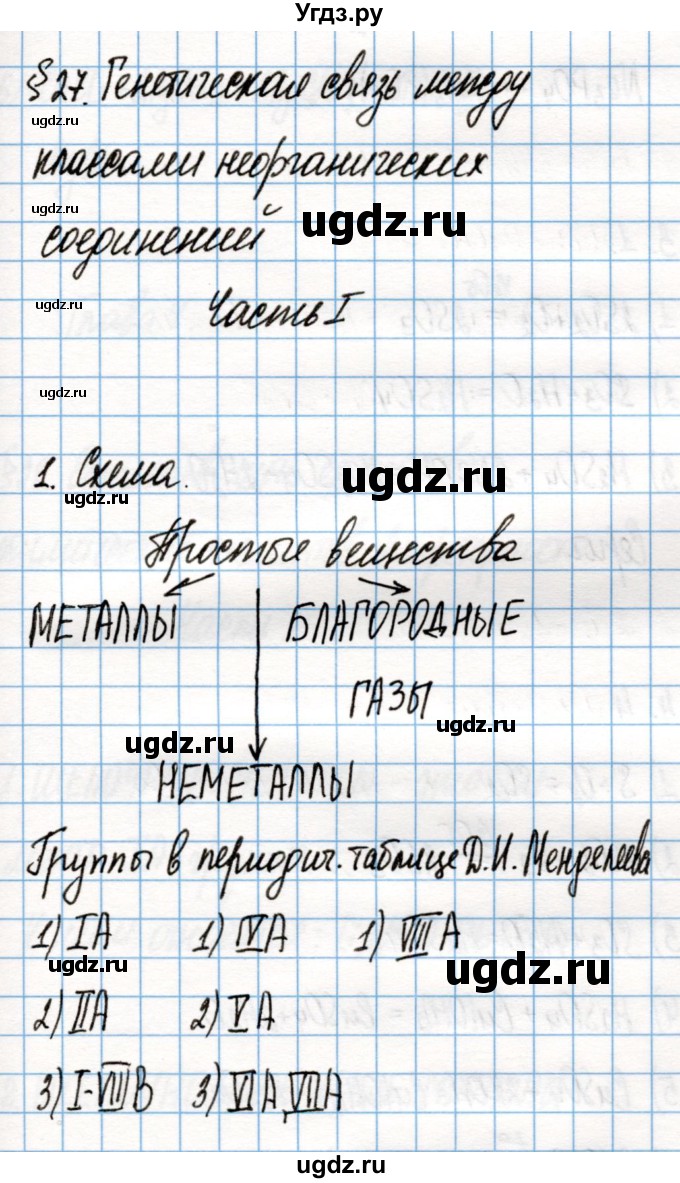 Угдз.ру
§ 27. Генетическая связь между
ugdz.ru
классами неорганических
ugdz.ru
соединений
ugdz.ru
ugdz.ru
Часть I
ugdz.ru
1. Схема.
ugdz.ru
ugdz.ru
Простые вещества
МЕТАЛЛЫ БЛАГОРОДНЫЕ
ГАЗЫ
ugdz.ru
ugdz.ru
НЕМЕТАЛЛЫ
Группы в периодич. таблице Д.И. Менделеева
1) IA 1) IVA 1) VIIIA
ugdz.ru
ugdz.ru
2) IIA 2) VA
3) I-VIIIB 3) VIA, VIIA
ugdz.ru